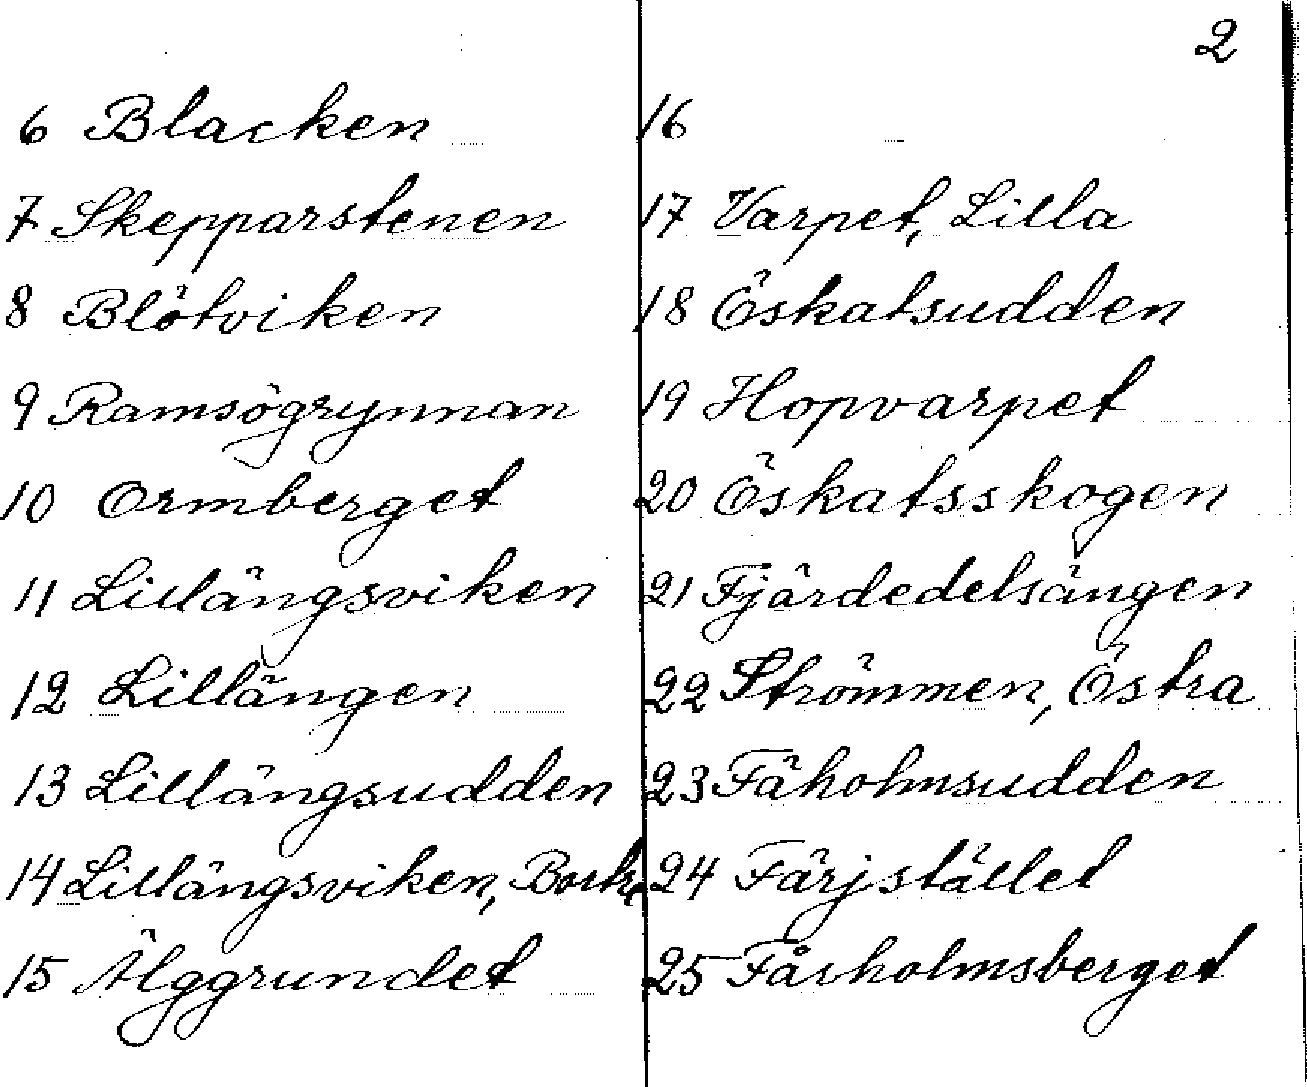 2
6 Blacken
7 Skepparstenen
8 Blötviken
9 Ramsögrynnan
10 Ormberget
11 Lillängsviken
12 Lillängen
13 Lillängsudden
14 Lillängsviken, Bortre
15 Älggrundet
16
17 Varpet, Lilla
18 Öskatsudden
19 Hopvarpet
20 Öskatsskogen
21 Fjärdedelsängen
22 Strömmen, Östra
23 Fäholmsudden
24 Färjstället
25 Fårholmsberget